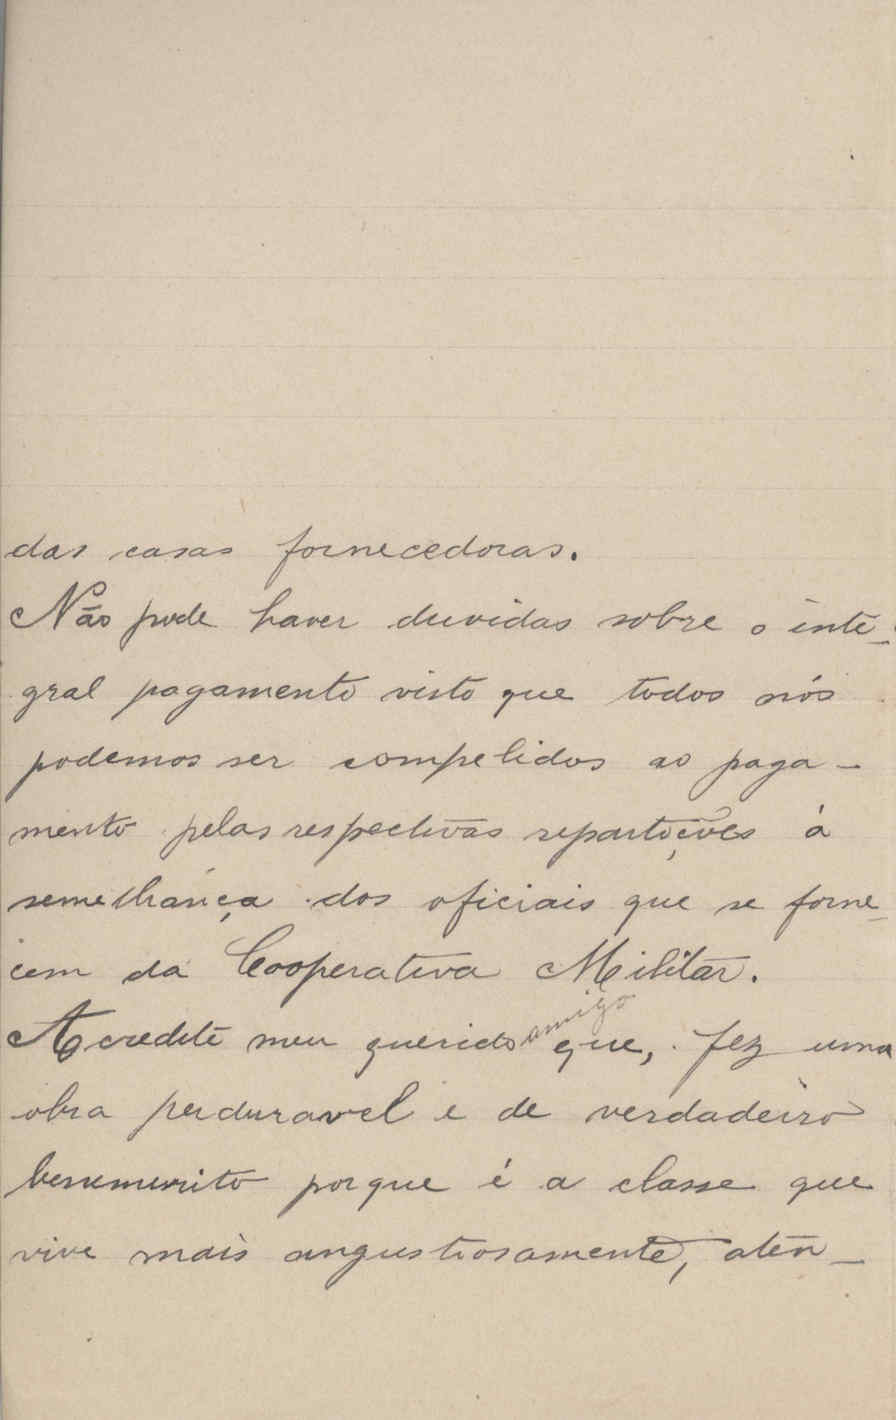 das casas fornecedoras.
Não pode haver duvidas sobre o inte-
gral pagamento visto que todos nós
podemos ser compelidos ao paga-
mento pelas respectivas repartições á
semelhança dos oficiais que se forne-
cem da Cooperativa Militar.
Acredite meu querido amigo que, fez uma
obra perduravel e de verdadeiro
benemerito porque é a classe que
vive mais angustiosamente, aten-